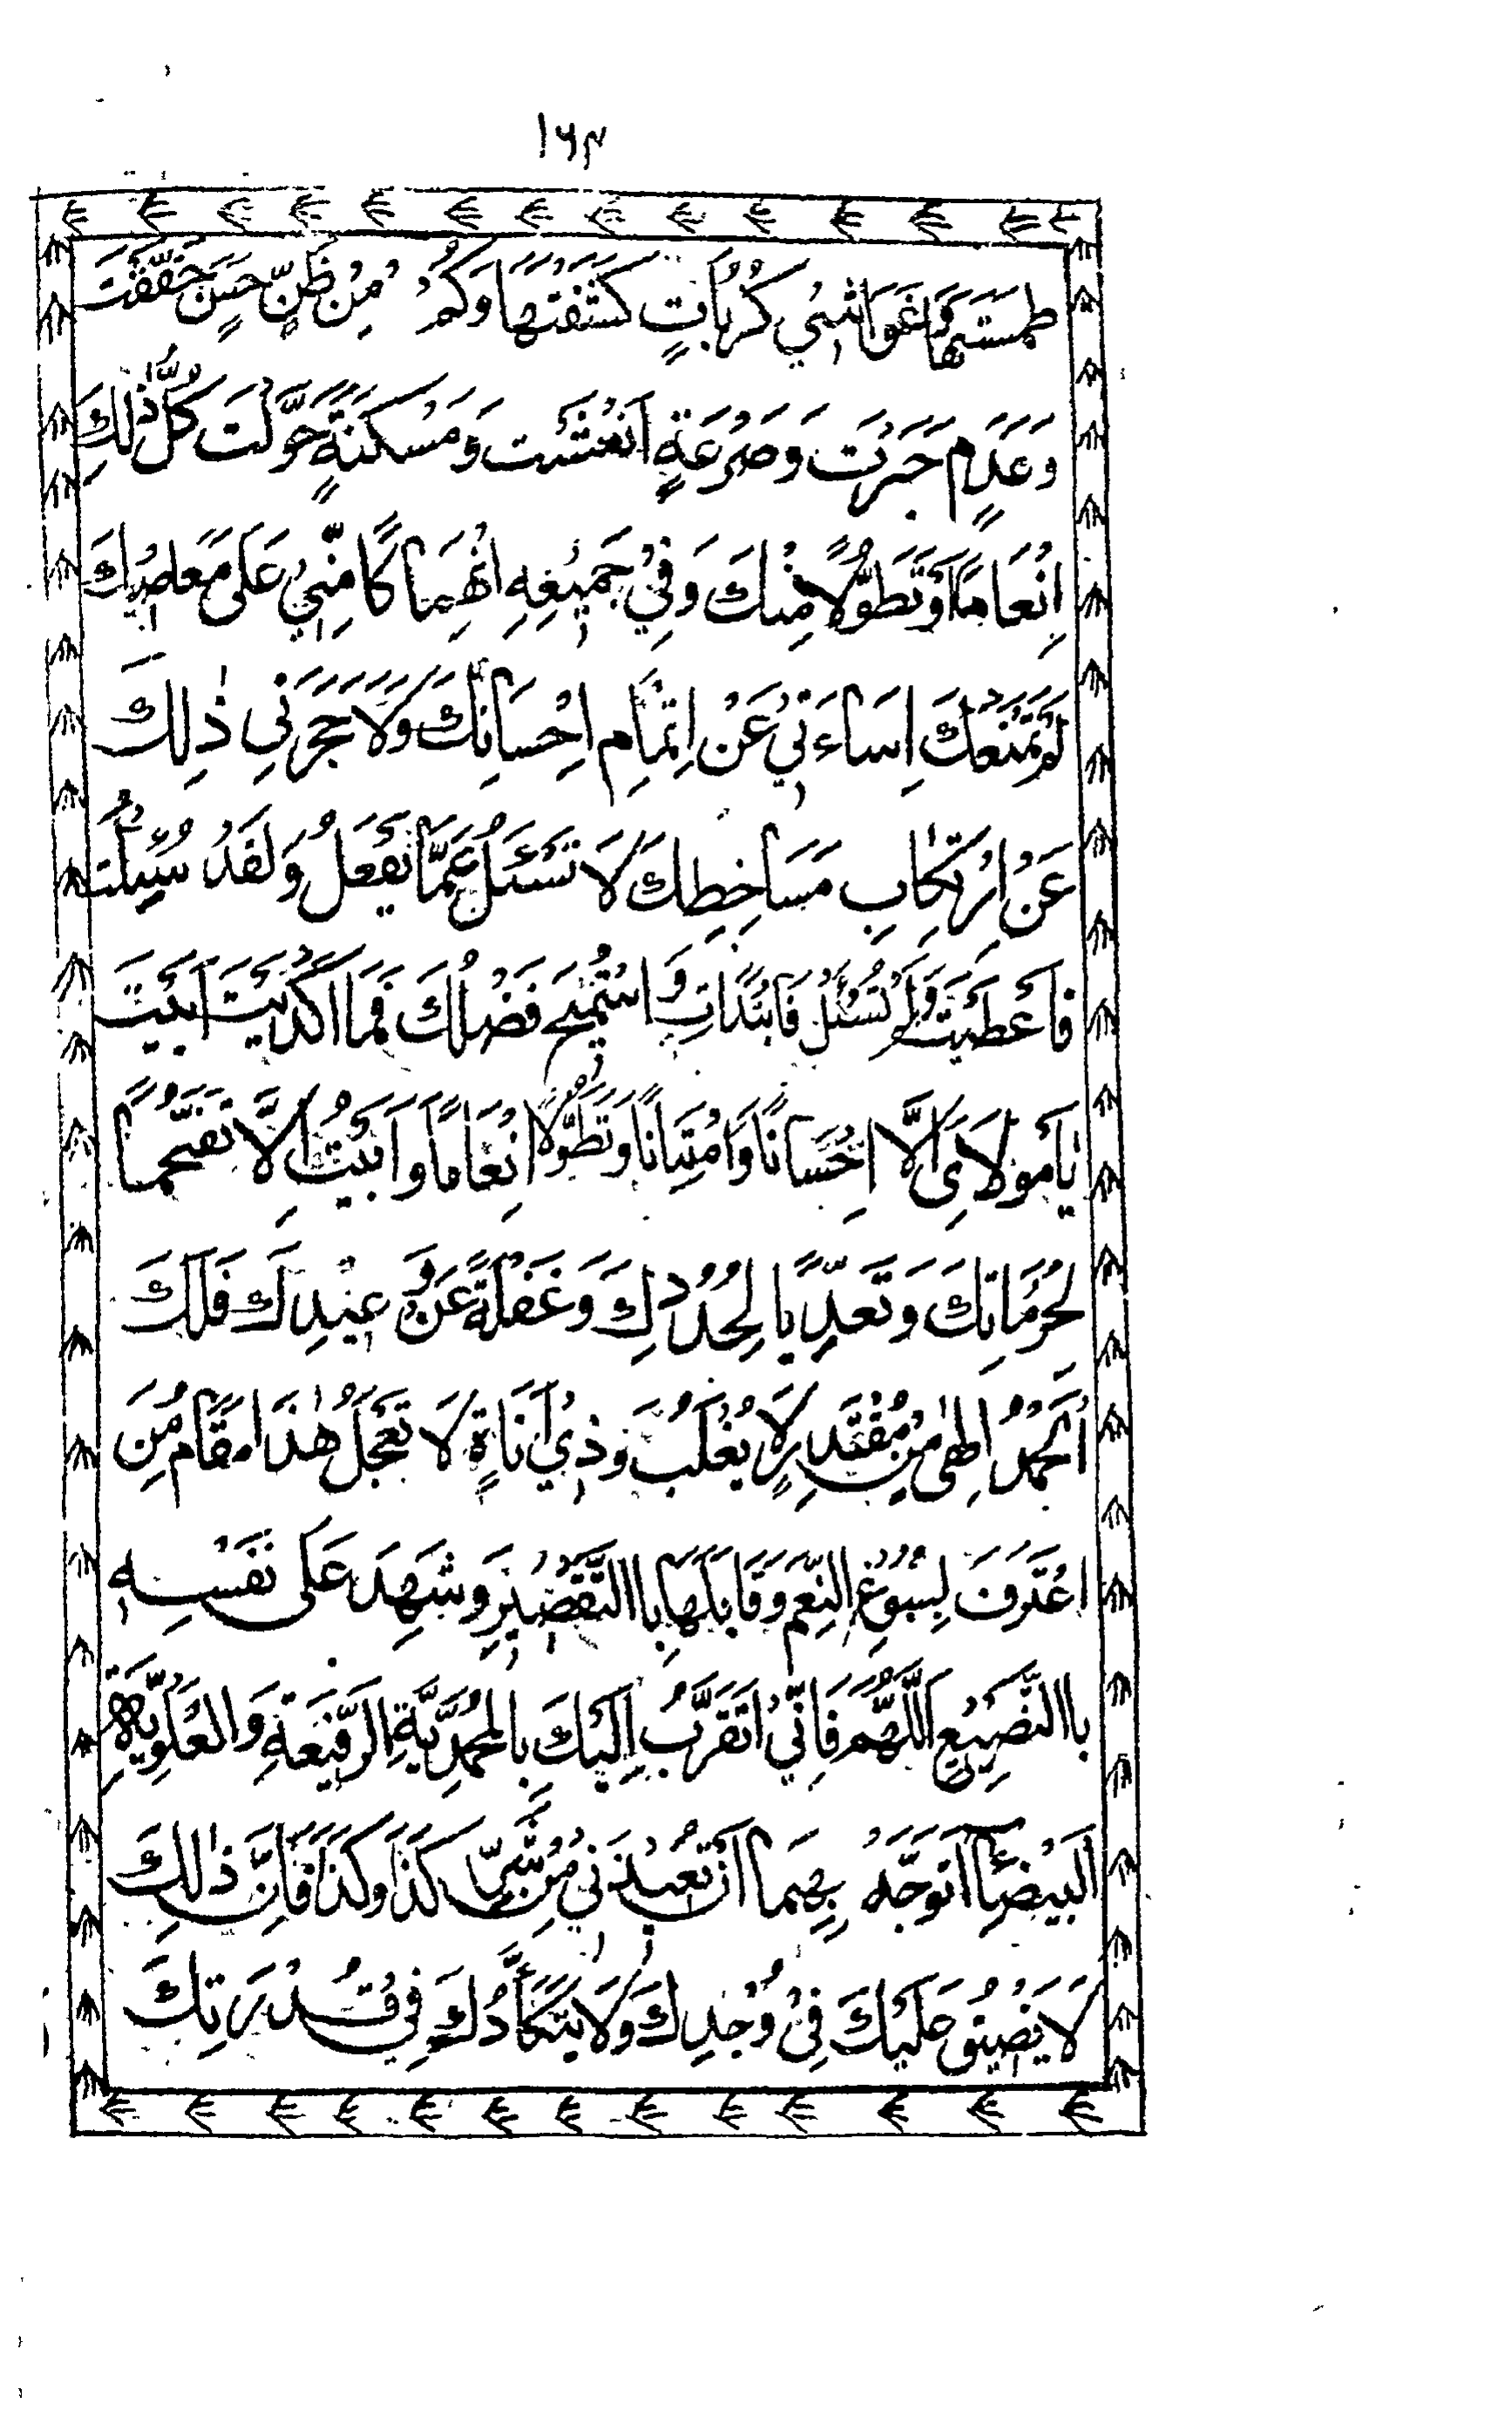 ۱۶۳
طَمَسْتَهَا وَغَوَاشِي كُرُبَاتٍ كَشَفْتَهَا وَكَمْ مِنْ ظَنٍّ حَسَنٍ حَقَّقْتَ
وَعَدَمٍ جَبَرْتَ وَصَرْعَةٍ اَنْعَشْتَ وَمَسْكَنَةٍ حَوَّلْتَ كُلُّ ذٰلِكَ
اِنْعَامًا وَتَطَوُّلًا مِنْكَ وَفِيْ جَمِيْعِهِ انْهِمَاكًا مِنِّيْ عَلٰى مَعَاصِيْكَ
لَمْ تَمْنَعْكَ اِسَاءَتِيْ عَنْ اِتْمَامِ اِحْسَانِكَ وَلَا حَجَرَنِى ذٰلِكَ
عَنْ ارْتِكَابِ مَسَاخِطِكَ لَا تُسْئَلُ عَمَّا تَفْعَلُ وَلَقَدْ سُئِلْتَ
فَأَعْطَيْتَ وَلَمْ تُسْئَلْ فَابْتَدَاتَ وَاسْتُمِيْحَ فَضْلُكَ فَمَا اَكْدَيْتَ اَبَيْتَ
يَامَوْلَاىَ اِلَّا اِحْسَانًا وَامْتِنَانًا وَتَطَوُّلًا اِنْعَامًا وَاَبَيْتُ اِلَّا تَقَحُّمًا
لِحُرُمَاتِكَ وَتَعَدِّيًا لِحُدُدِكَ وَغَفْلَةً عَنْ وَعِيْدِكَ فَلَكَ
اَلْحَمْدُ اِلٰهِىْ مِنْ مُقْتَدِرٍ لَا يُغْلَبُ وَذِيْ اَنَاةٍ لَا تَعْجَلُ هٰذَا مَقَامُ مَنِ
اعْتَرَفَ لِسُبُوْغِ النِّعَمِ وَقَابَلَهَا بِاالتَّقْصِيْرِ وَشَهِدَ عَلٰى نَفْسِهٖ
بِاالتَّضْيِيْعِ اَللّٰهُمَّ فَاِنِّيْ اَتَقَرَّبُ اِلَيْكَ بِالْمُحَمَّدِيَّةِ الرَّفِيْعَةِ وَالْعَلَوِيَّةِ
الْبَيْضَاءِ اَتَوَجَّهُ بِهِمَا اَنْ تُعِيْذَنِيْ مِنْ شَرِّ كَذَا وَكَذَا فَاِنَّ ذٰلِكَ
لَا يَضِيْقُ عَلَيْكَ فِيْ وُجْدِكَ وَلَا يَتَكَأَّدُكَ فِيْ قُدْرَتِكَ